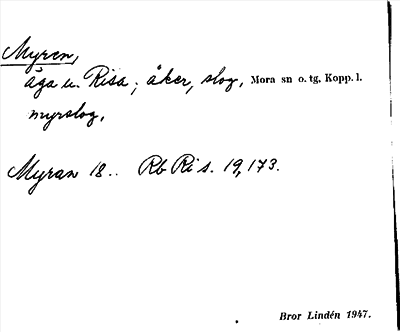 Myren,
äga u. Risa; åker, slog, Mora sn o. tg, Kopp. l.
myrslog,
Myran 18.. Rb Ri s. 19, 173.
Bror Lindén 1947.